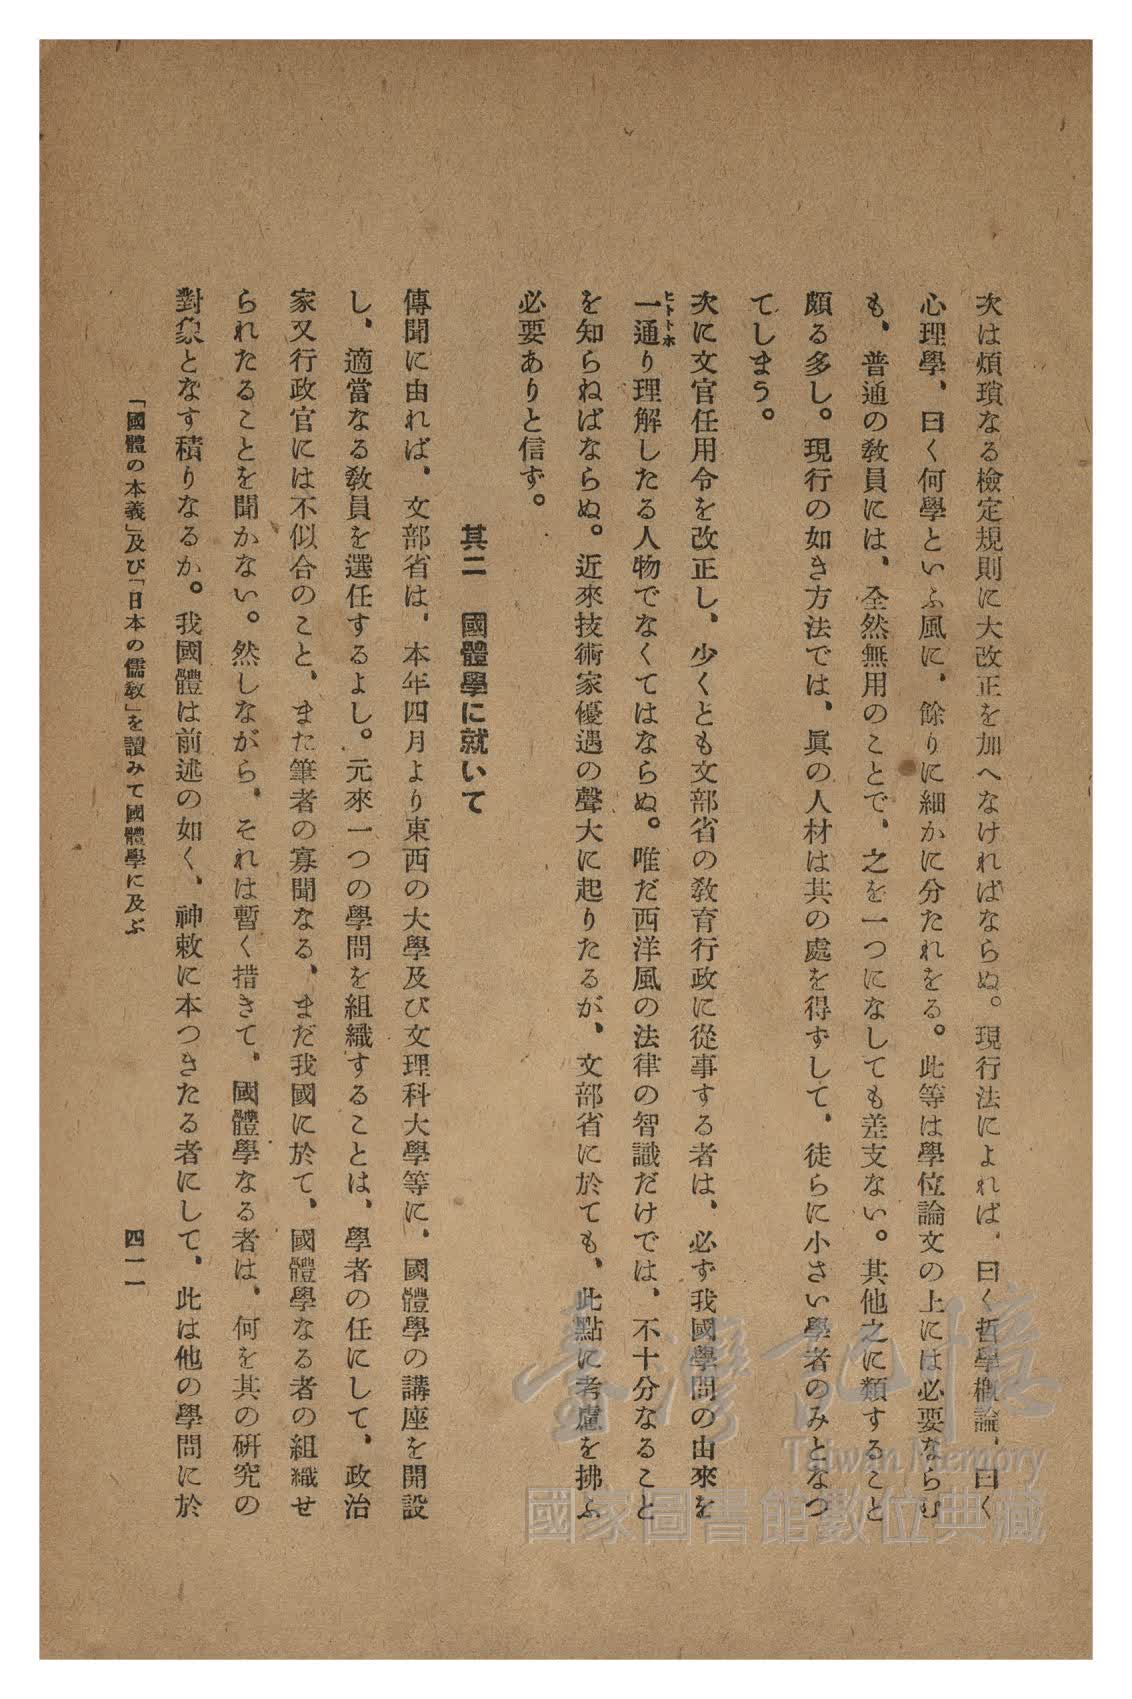 次は煩瑣なる檢定規則に大改正を加へなければならぬ。現行法によれば、曰く哲學槪論、曰く
心理學、曰く何學といふ風に、餘りに細かに分たれをる。此等は學位論文の上には必要ならむ
も、普通の敎員には、全然無用のことで、之を一つになしても差支ない。其他之に類すること
頗る多し。現行の如き方法では、眞の人材は其の處を得ずして、徒らに小さい學者のみとなつ
てしまう。
次に文官任用令を改正し、少くとも文部省の敎育行政に從事する者は、必ず我國學問の由來を
一通り理解したる人物でなくてはならぬ。唯だ西洋風の法律の智識だけでは、不十分なること
を知らねばならぬ。近來技術家優遇の聲大に起りたるが、文部省に於ても、此點に考慮を拂ふ
必要ありと信ず。
其二　國體學に就いて
傳聞に由れば、文部省は、本年四月より東西の大學及び文理科大學等に、國體學の講座を開設
し、適當なる敎員を選任するよし。元來一つの學問を組織することは、學者の任にして、政治
家又行政官には不似合のこと、また筆者の寡聞なる、まだ我國に於て、國體學なる者の組織せ
られたることを聞かない。然しながら、それは暫く措きて、國體學なる者は、何を其の硏究の
對象となす積りなるか。我國體は前述の如く、神敕に本つきたる者にして、此は他の學問に於
「國體の本義」及び「日本の儒敎」を讀みて國體學に及ぶ
四一一
臺灣記憶
Taiwan Memory
國家圖書館數位典藏